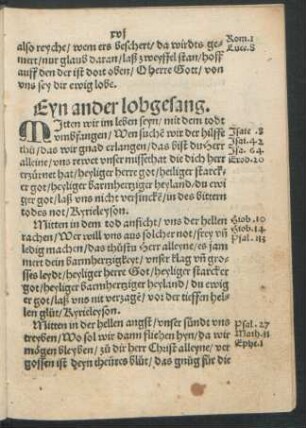 xvj
also reyche/ wem ers beschert/ da wirdts ge⸗
mert/ nur glaub daran/ laß zweyffel stan/ hoff
auff den der ist dort oben/ O herre Gott/ von
vns sey dir ewig lobe.
Rom.1
Luce.8
Eyn ander lobgesang.
MItten wir im leben seyn/ mit dem todt
vmbfangen/ Wen suchē wir der hilffe
thů/ das wir gnad erlangen/ das bist du Herr
alleine/ vns rewet vnser missethat die dich herr
erzürnet hat/ heyliger herre got/ heyliger starck⸗
er got/ heyliger barmhertziger heyland/ du ewi
ger got/ laß vns nit versinckē/ in des bittern
todes not/ Kyrieleyson.
Isaie .8
Psal.42
Isa. 64
Exod.20
Mitten in dem tod anficht/ vns der hellen
rachen/ Wer will vns auß solcher not/ frey vñ
ledig machen/ das thůstu Herr alleyne/ es jam
mert dein barmhertzigkeyt/ vnser klag vñ gros⸗
ses leydt/ heyliger herre Got/ heyliger starcker
got/ heyliger barmhertziger heyland/ du ewig
er got/ laß vns nit verzagē/ vor der tieffen hel⸗
len glůt/ Kyrieleyson.
Hiob.10
Hiob.14
Psal.113
Mitten in der hellen angst/ vnser sündt vns
treyben/ Wo sol wir dann fliehen hyn/ da wir
mögen bleyben/ zů dir herr Christ alleyne/ ver
gossen ist deyn theüres blůt/ das gnůg für die
Psal. 27
Math.11
Ephe.1